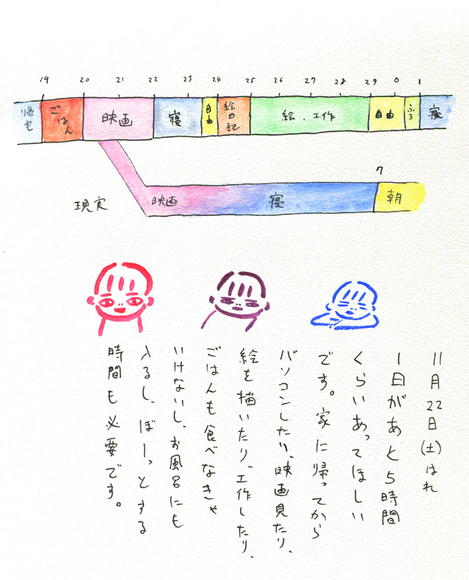 19 20 21 22 23 24 25 26 27 28 29 0 1
帰宅 ごはん 映画 寝 自由 絵日記 絵、工作 自由 ふろ 寝
7
現実 映画 寝 朝
11月22日(土)はれ
1日があと5時間
くらいあってほしい
です。家に帰ってから
パソコンしたり、映画見たり、
絵を描いたり、工作したり、
ごはんも食べなきゃ
いけないし、お風呂にも
入るし、ぼーっとする
時間も必要です。